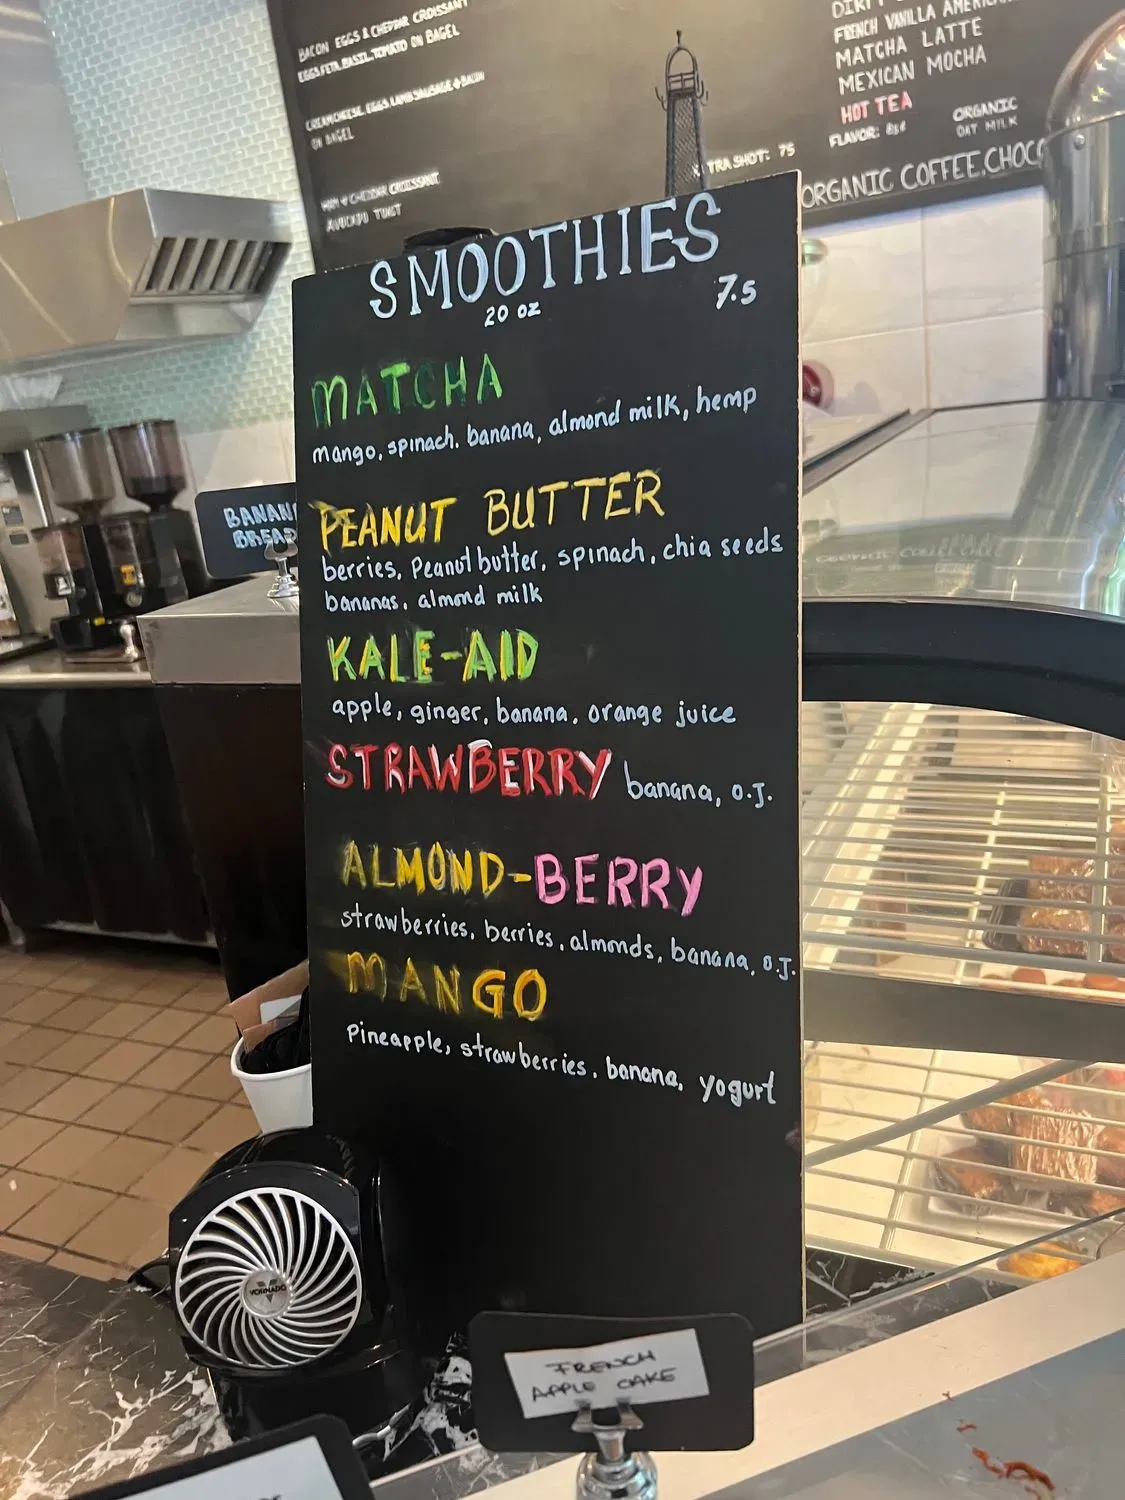 BACON EGGS & CHEDDAR CROISSANT
EGGS, FETA, BASIL, TOMATO ON BAGEL
CREAMCHEESE, EGGS, LAMB SAUSAGE & BACON
ON BAGEL
HAM & CHEDDAR CROISSANT
AVOCADO TOAST
FRENCH VANILLA AMERICAN
MATCHA LATTE
MEXICAN MOCHA
HOT TEA
FLAVOR:
ORGANIC
OAT MILK
TRA SHOT: 75
ORGANIC COFFEE, CHOC
SMOOTHIES
20 oz
7.5
MATCHA
mango, spinach, banana, almond milk, hemp
PEANUT BUTTER
berries, Peanut butter, spinach, chia seeds
bananas, almond milk
KALE-AID
apple, ginger, banana, orange juice
STRAWBERRY banana, O.J.
ALMOND-BERRY
strawberries, berries, almonds, banana, O.J.
MANGO
Pineapple, strawberries, banana, yogurt
BANAN
BREAD
VORNADO
FRENCH
APPLE CAKE